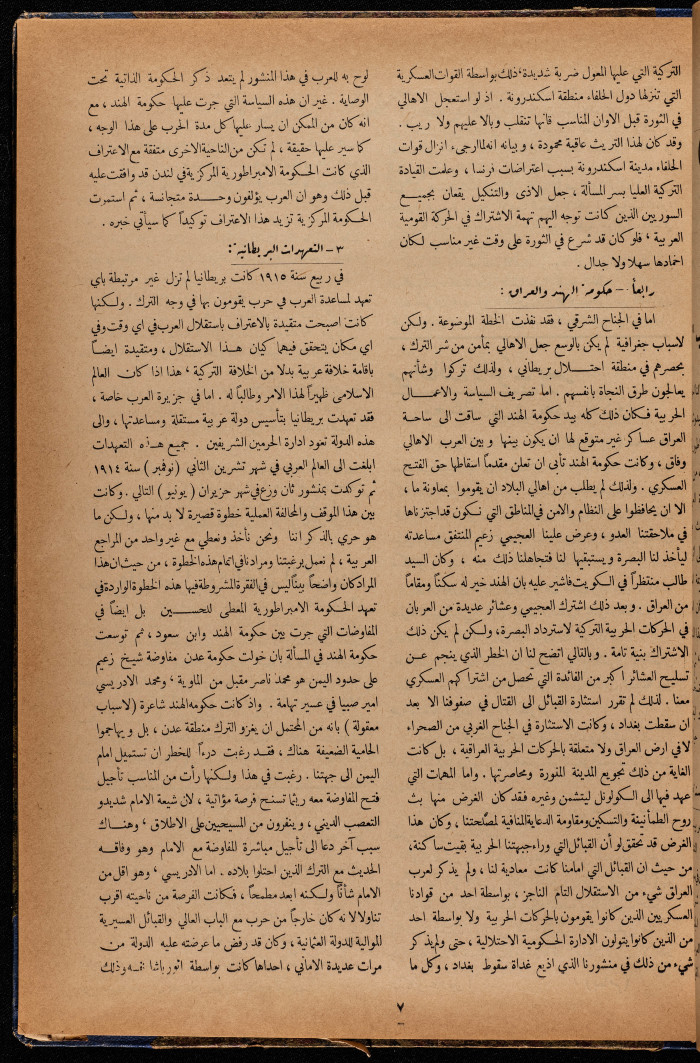 التركية التي عليها المعول ضربة شديدة، ذلك بواسطة القوات العسكرية
التي تنزلها دول الحلفاء منطقة اسكندرونة . اذ لو استعجل الاهالي
في الثورة قبل الاوان المناسب فانها تنقلب وبالا عليهم ولا ريب .
وقد كان لهذا التريث عاقبة محمودة ، وبيانه انه لما ارجىء انزال قوات
الحلفاء مدينة اسكندرونة بسبب اعتراضات فرنسا ، وعلمت القيادة
التركية العليا بسر المسألة ، جعل الاذى والتنكيل يقعان بجميع
السوريين الذين كانت توجه اليهم تهمة الاشتراك في الحركة القومية
العربية ، فلو كان قد شرع في الثورة على وقت غير مناسب لكان
اخمادها سهلا ولا جدال .
رابعاً - حكومة الهند والعراق :
اما في الجناح الشرقي ، فقد نفذت الخطة الموضوعة . ولكن
لاسباب جغرافية لم يكن بالوسع جعل الاهالي بمأمن من شر الترك ،
بحصرهم في منطقة احتلال بريطاني ، ولذلك تركوا وشأنهم
يعالجون طرق النجاة بانفسهم . اما تصريف السياسة والاعمال
الحربية فكان ذلك كله بيد حكومة الهند التي ساقت الى ساحة
العراق عساكر غير متوقع لها ان يكون بينها وبين العرب الاهالي
وفاق ، وكانت حكومة الهند تأبى ان تعلن مقدماً اسقاطها حق الفتح
العسكري . ولذلك لم يطلب من اهالي البلاد ان يقوموا بمعاونة ما ،
الا ان يحافظوا على النظام والامن في المناطق التي نكون قد اجتزناها
في ملاحقتنا العدو ، وعرض علينا العجيمي زعيم المنتفق مساعدته
ليأخذ لنا البصرة ويستبقيها لنا فتجاهلنا ذلك منه ، وكان السيد
طالب منتظراً في الكويت فاشير عليه بان الهند خير له سكناً ومقاماً
من العراق . وبعد ذلك اشترك العجيمي وعشائر عديدة من العربان
في الحركات الحربية التركية لاسترداد البصرة ، ولكن لم يكن ذلك
الاشتراك بنية تامة . وبالتالي اتضح لنا ان الخطر الذي ينجم عن
تسليح العشائر اكبر من الفائدة التي نحصل من اشتراكهم العسكري
معنا . لذلك لم تقرر استثارة القبائل الى القتال في صفوفنا الا بعد
ان سقطت بغداد ، وكانت الاستثارة في الجناح الغربي من الصحراء
لا في ارض العراق ولا متعلقة بالحركات الحربية العراقية ، بل كانت
الغاية من ذلك تجويع المدينة المنورة ومحاصرتها . واما المهمات التي
عهد فيها الى الكولونل ليتشمن وغيره فقد كان الغرض منها بث
روح الطمأنينة والتسكين ومقاومة الدعاية المنافية لمصلحتنا ، وكان هذا
الغرض قد تحقق لو أن القبائل التي وراء جبهتنا الحربية بقيت ساكنة ،
من حيث ان القبائل التي امامنا كانت معادية لنا ، ولم يذكر لعرب
العراق شيء من الاستقلال التام الناجز ، بواسطة احد من قوادنا
العسكريين الذين كانوا يقومون بالحركات الحربية ولا بواسطة احد
من الذين كانوا يتولون الادارة الحكومية الاحتلالية ، حتى ولم يذكر
شيء من ذلك في منشورنا الذي اذيع غداة سقوط بغداد ، وكل ما
لوح به للعرب في هذا المنشور لم يتعد ذكر الحكومة الذاتية تحت
الوصاية . غير ان هذه السياسة التي جرت عليها حكومة الهند ، مع
انه كان من الممكن ان يسار عليها كل مدة الحرب على هذا الوجه ،
كما سير عليها حقيقة ، لم تكن من الناحية الاخرى متفقة مع الاعتراف
الذي كانت الحكومة الامبراطورية المركزية في لندن قد وافقت عليه
قبل ذلك وهو ان العرب يؤلفون وحدة متجانسة ، ثم استمرت
الحكومة المركزية تزيد هذا الاعتراف توكيداً كما سيأتي خبره .
٣ - التعهدات البريطانية :
في ربيع سنة ١٩١٥ كانت بريطانيا لم تزل غير مرتبطة باي
تعهد لمساعدة العرب في حرب يقومون بها في وجه الترك . ولكنها
كانت اصبحت متقيدة بالاعتراف باستقلال العرب في اي وقت وفي
اي مكان يتحقق فيهما كيان هذا الاستقلال ، ومتقيدة ايضاً
باقامة خلافة عربية بدلا من الخلافة التركية ، هذا اذا كان العالم
الاسلامي ظهيراً لهذا الامر وطالباً له . اما في جزيرة العرب خاصة ،
فقد تعهدت بريطانيا بتأسيس دولة عربية مستقلة ومساعدتها ، والى
هذه الدولة تعود ادارة الحرمين الشريفين . جميع هذه التعهدات
ابلغت الى العالم العربي في شهر تشرين الثاني ( نوفمبر ) سنة ١٩١٤
ثم توكدت بمنشور ثان وزع في شهر حزيران ( يونيو ) التالي . وكانت
بين هذا الموقف والمحالفة العملية خطوة قصيرة لا بد منها ، ولكن ما
هو حري بالذكر اننا ونحن نأخذ ونعطي مع غير واحد من المراجع
العربية ، لم نعمل برغبتنا ومرادنا في اتمام هذه الخطوة ، من حيث ان هذا
المراد كان واضحاً بيناً ليس في الفقرة المشروطة فيها هذه الخطوة الواردة في
تعهد الحكومة الامبراطورية المعطى للحسين بل ايضاً في
المفاوضات التي جرت بين حكومة الهند وابن سعود ، ثم توسعت
حكومة الهند في المسألة بان خولت حكومة عدن مفاوضة شيخ زعيم
على حدود اليمن هو محمد ناصر مقبل من الماوية ، ومحمد الادريسي
امير صبيا في عسير تهامة . واذ كانت حكومة الهند شاعرة ( لاسباب
معقولة ) بانه من المحتمل ان يغزو الترك منطقة عدن ، بل ويهاجموا
الحامية الضعيفة هناك ، فقد رغبت درءاً للخطر ان تستميل امام
اليمن الى جهتنا . رغبت في هذا ولكنها رأت من المناسب تأجيل
فتح المفاوضة معه ريثما تسنح فرصة مؤاتية ، لان شيعة الامام شديدو
التعصب الديني ، وينفرون من المسيحيين على الاطلاق ، وهناك
سبب آخر دعا الى تأجيل مباشرة المفاوضة مع الامام وهو وفاقه
الحديث مع الترك الذين احتلوا بلاده . اما الادريسي ، وهو اقل من
الامام شأناً ولكنه ابعد مطمحاً ، فكانت الفرصة من ناحيته اقرب
تناولا لانه كان خارجاً من حرب مع الباب العالي والقبائل العسيرية
الموالية للدولة العثمانية ، وكان قد رفض ما عرضته عليه الدولة من
مرات عديدة الاماني ، احداها كانت بواسطة انور باشا نفسه وذلك
٧